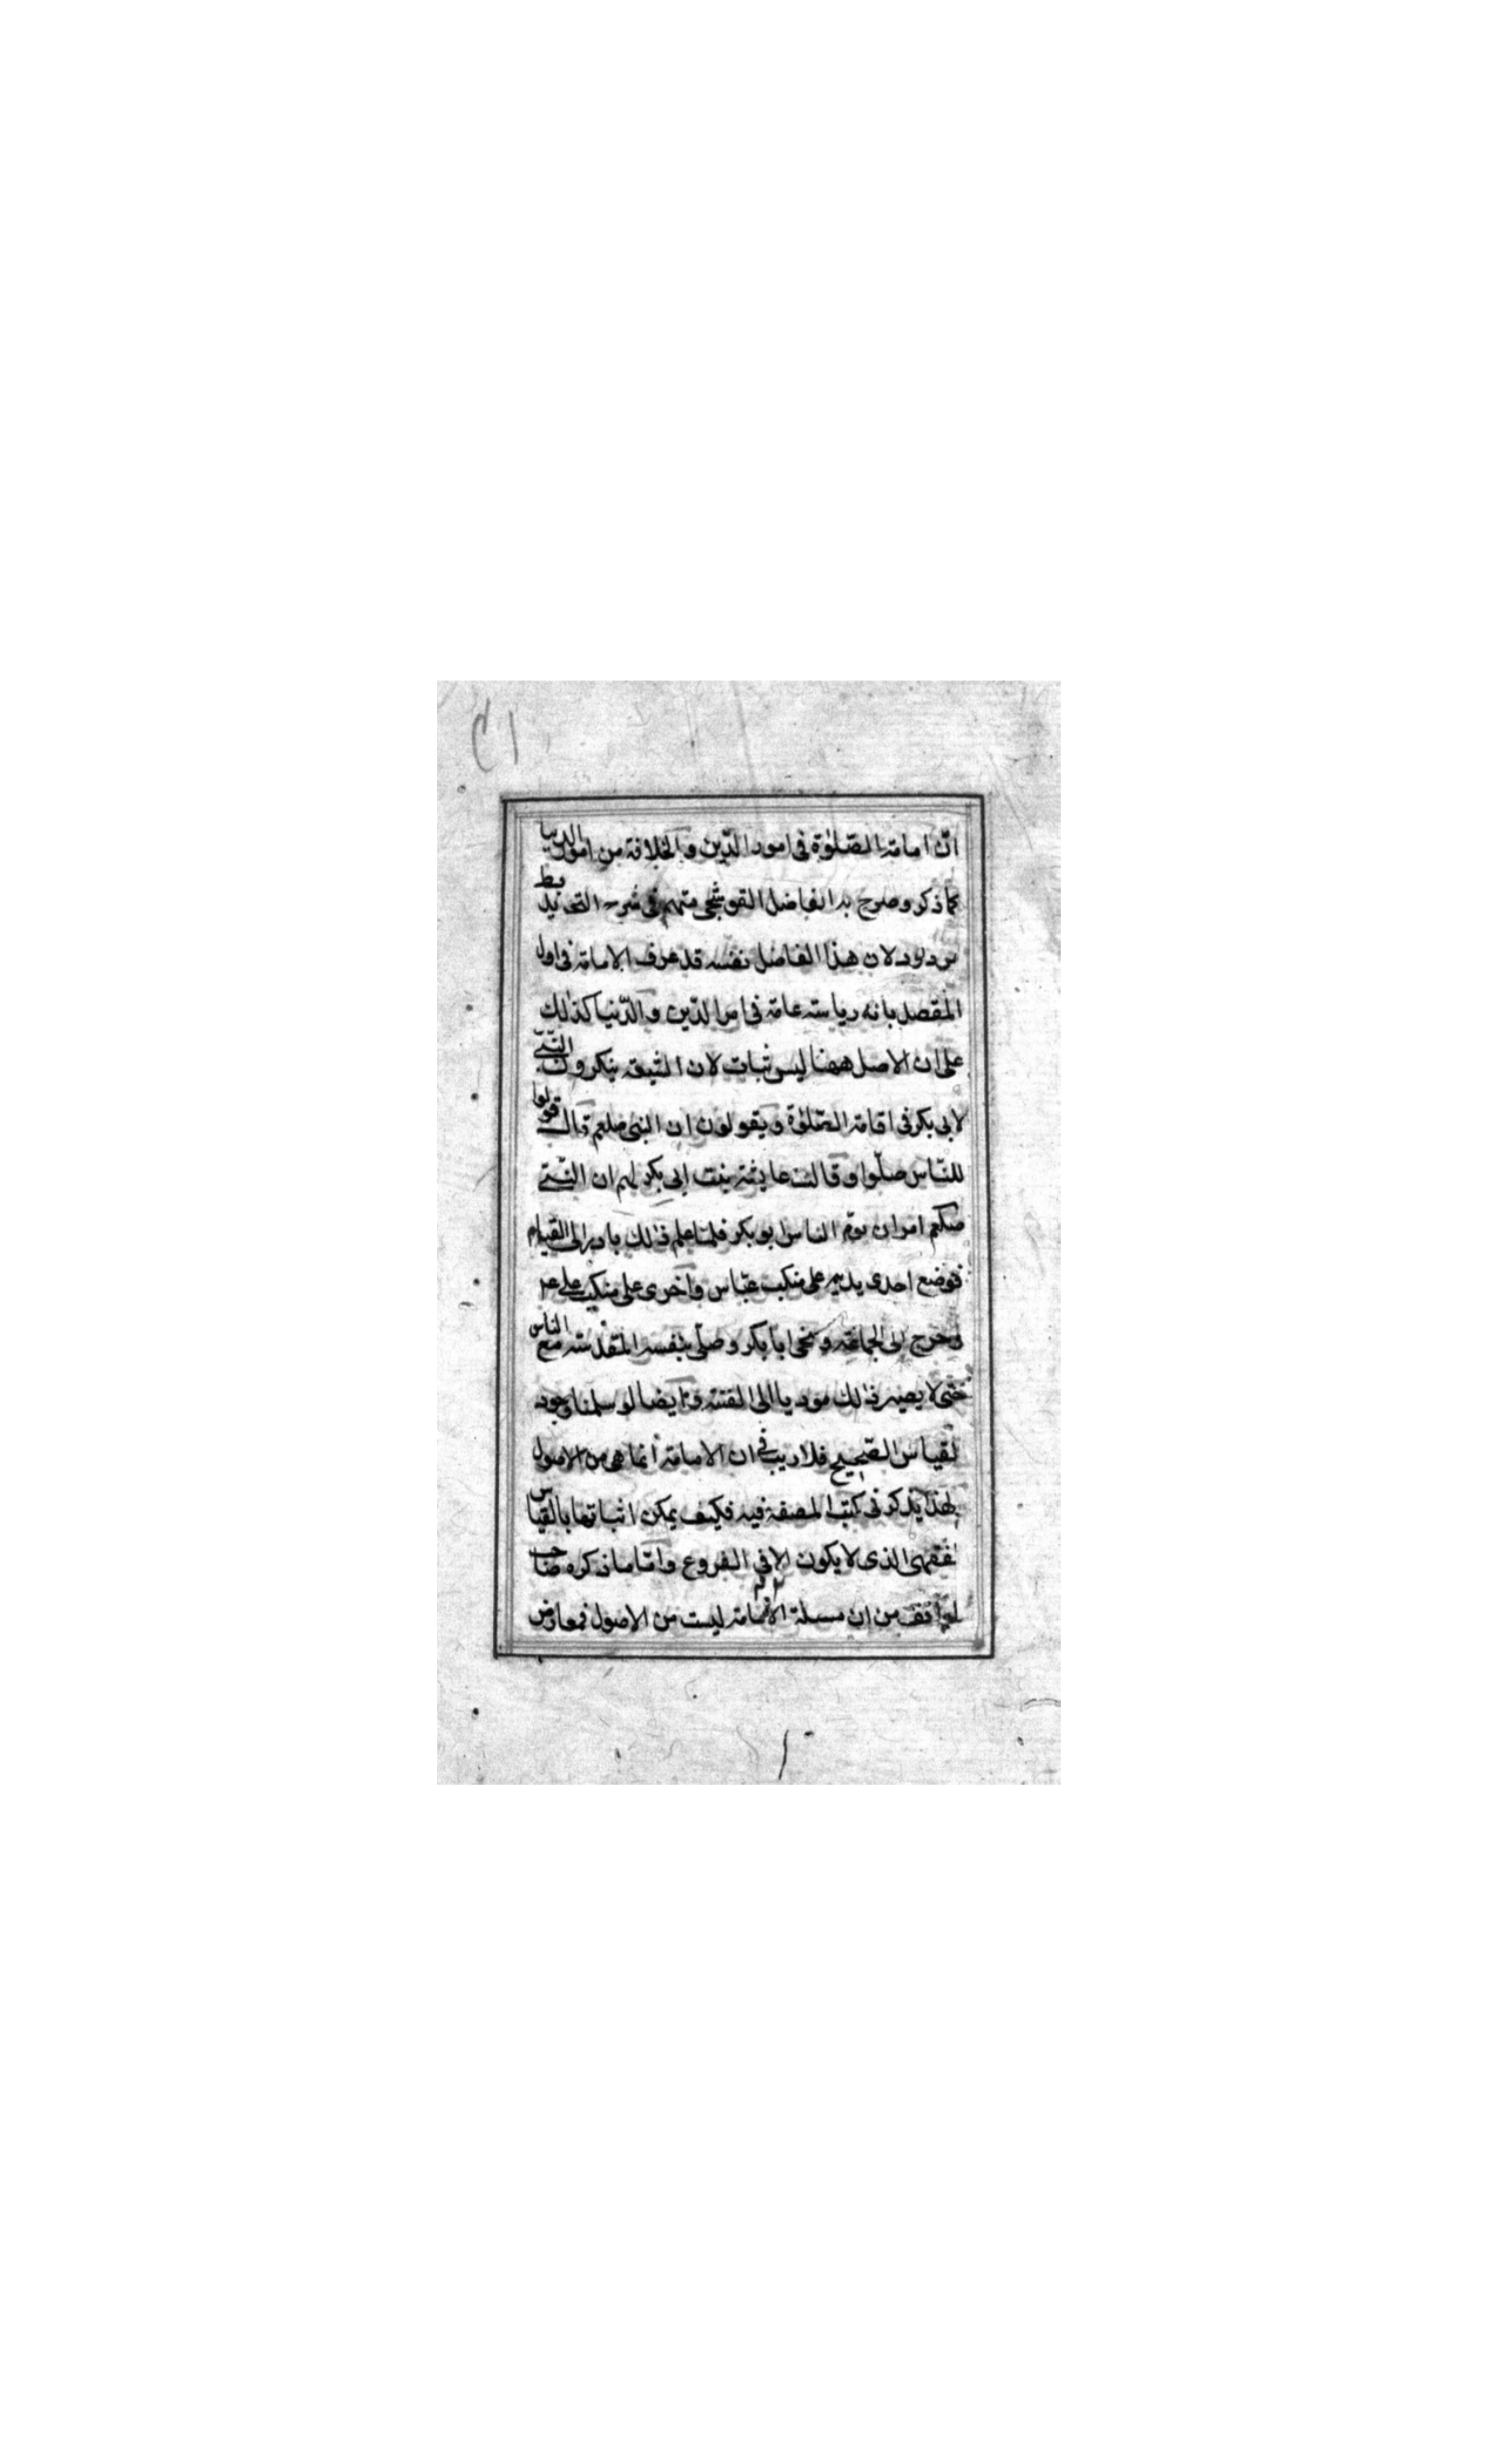 انّ امامة الصّلوٰة فى امور الدّين و الخلافة من امور الدنيا
كما ذكر و صرح به الفاضل القوشجى منهم فى شرح التجريد
مردود لان هذا الفاضل نفسه قد عرف الامامة فى اول
المقصد بانه رياسته عامة فى امر الدّين و الدّنيا كذلك
على ان الاصل ههنا ليس ثبات لان الشيعة ينكرون النّبىّ
لابى بكر فى اقامة الصّلوٰة و يقولون ان النبى صلعم قال قولوا
للنّاس صلّوا و قالت عايشة بنت ابى بكر لهم ان النّبىّ
صلعم امر ان يؤم الناس ابو بكر فلمّا علم ذلك بادر الى القيام
فوضع احدى يديه على منكب عبّاس و اخرى على منكب على ع
و خرج الى الجماعة و نحى ابا بكر و صلّى بنفسه المقدسة مع الناس
حتى لا يصير ذلك موديا الى الفتنة و ايضا لو سلمنا وجود
لقياس الصّحيح فلا ريب فى ان الامامة انما هى من الاصول
لهذا يذكر فى كتب المصنفة فيه فكيف يمكن اثباتها بالقياس
لفقهى الذى لا يكون الا فى الفروع و امّا ما ذكره صاحب
لمواقف من ان مسئلة الامامة ليست من الاصول فمعارض